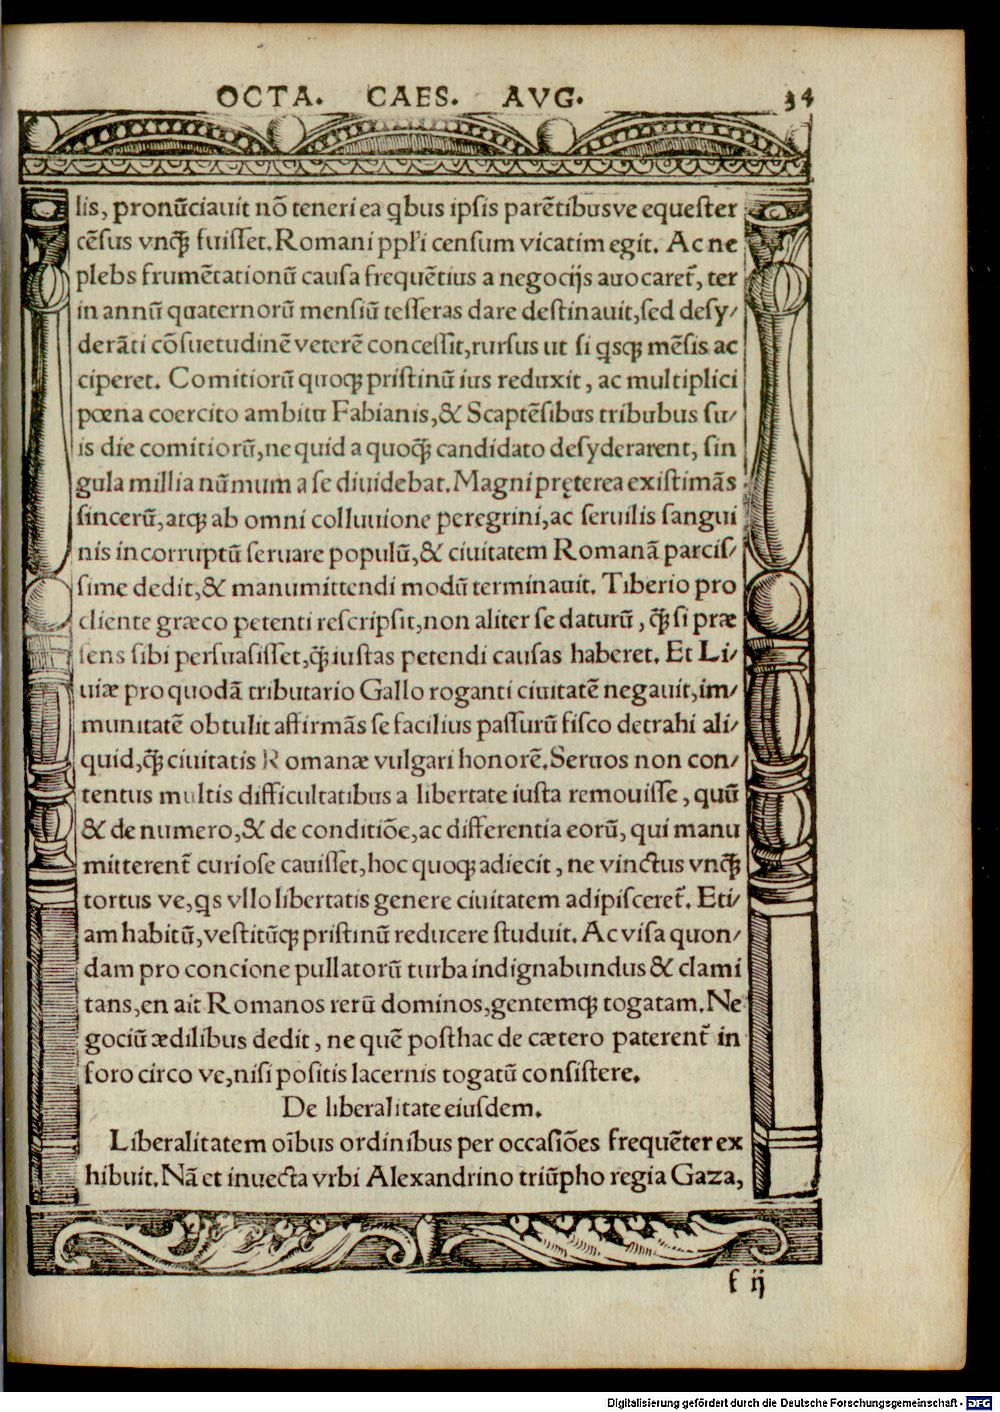 OCTA. CAES. AVG. 34
lis, pronũciauit nõ teneri ea q̃bus ipsis parẽtibusve equeſter
cẽſus vnq̃ fuiſſet. Romani pp̃li cenſum vicatim egit. Ac ne
plebs frumẽtationũ cauſa frequẽtius a negocijs auocaret̃, ter
in annũ quaternorũ menſiũ teſſeras dare deſtinauit, ſed deſy/
derãti cõſuetudinẽ veterẽ conceſſit, rurſus ut ſi qsq; mẽſis ac
ciperet. Comitiorũ quoq; priſtinũ ius reduxit, ac multiplici
pœna coercito ambitu Fabianis, & Scaptẽſibus tribubus ſu/
is die comitiorũ, ne quid a quoq̃ candidato deſyderarent, ſin
gula millia nũmum a ſe diuidebat. Magni pręterea exiſtimãs
ſincerũ, atq; ab omni colluuione peregrini, ac ſeruilis ſangui
nis incorruptũ ſeruare populũ, & ciuitatem Romanã parciſ/
ſime dedit, & manumittendi modũ terminauit. Tiberio pro
cliente græco petenti reſcripſit, non aliter ſe daturũ, q̃ ſi præ
ſens ſibi perſuaſiſſet, q̃ iuſtas petendi cauſas haberet. Et Li/
uiæ pro quodã tributario Gallo roganti ciuitatẽ negauit, im/
munitatẽ obtulit affirmãs ſe facilius paſſurũ fiſco detrahi ali/
quid, q̃ ciuitatis Romanæ vulgari honorẽ. Seruos non con/
tentus multis difficultatibus a libertate iuſta remouiſſe, quũ
& de numero, & de conditiõe, ac differentia eorũ, qui manu
mitterent̃ curioſe cauiſſet, hoc quoq; adiecit, ne vinctus vnq̃
tortus ve, qs vllo libertatis genere ciuitatem adipiſceret̃. Eti/
am habitũ, veſtitũq; priſtinũ reducere ſtuduit. Ac viſa quon/
dam pro concione pullatorũ turba indignabundus & clami
tans, en ait Romanos rerũ dominos, gentemq; togatam. Ne
gociũ ædilibus dedit, ne quẽ poſthac de cætero paterent̃ in
foro circo ve, niſi poſitis lacernis togatũ conſiſtere.
De liberalitate eiuſdem.
Liberalitatem oĩbus ordinibus per occaſiões frequẽter ex
hibuit. Nã et inuecta vrbi Alexandrino triũpho regia Gaza,
f ij
Digitalisierung gefördert durch die Deutsche Forschungsgemeinschaft - DFG